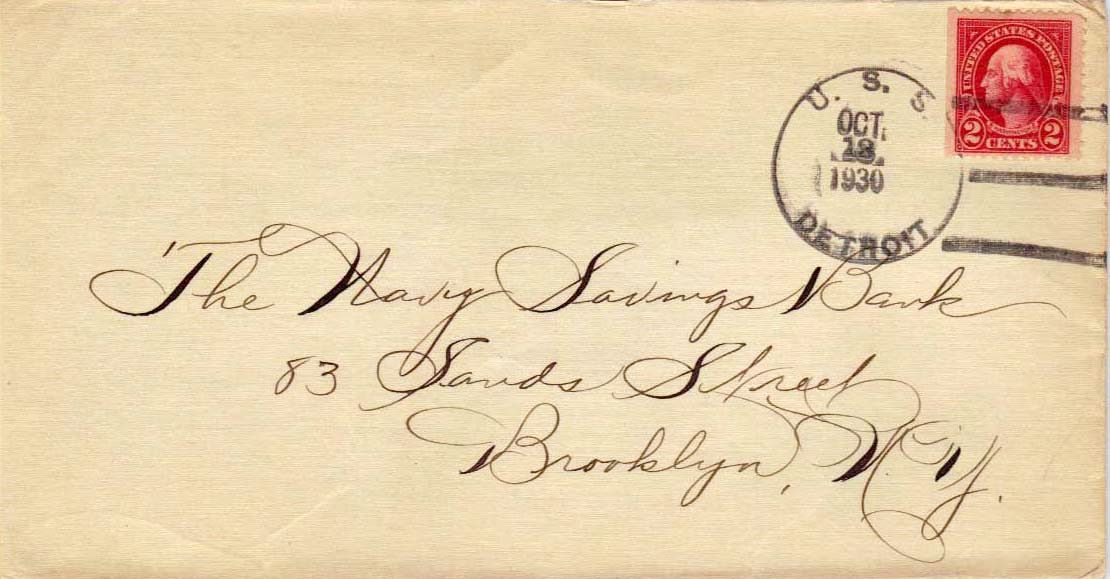 UNITED STATES POSTAGE
2 CENTS 2
U. S. S.
OCT.
1930
DETROIT
The Navy Savings Bank
83 Sands Street
Brooklyn, N.Y.